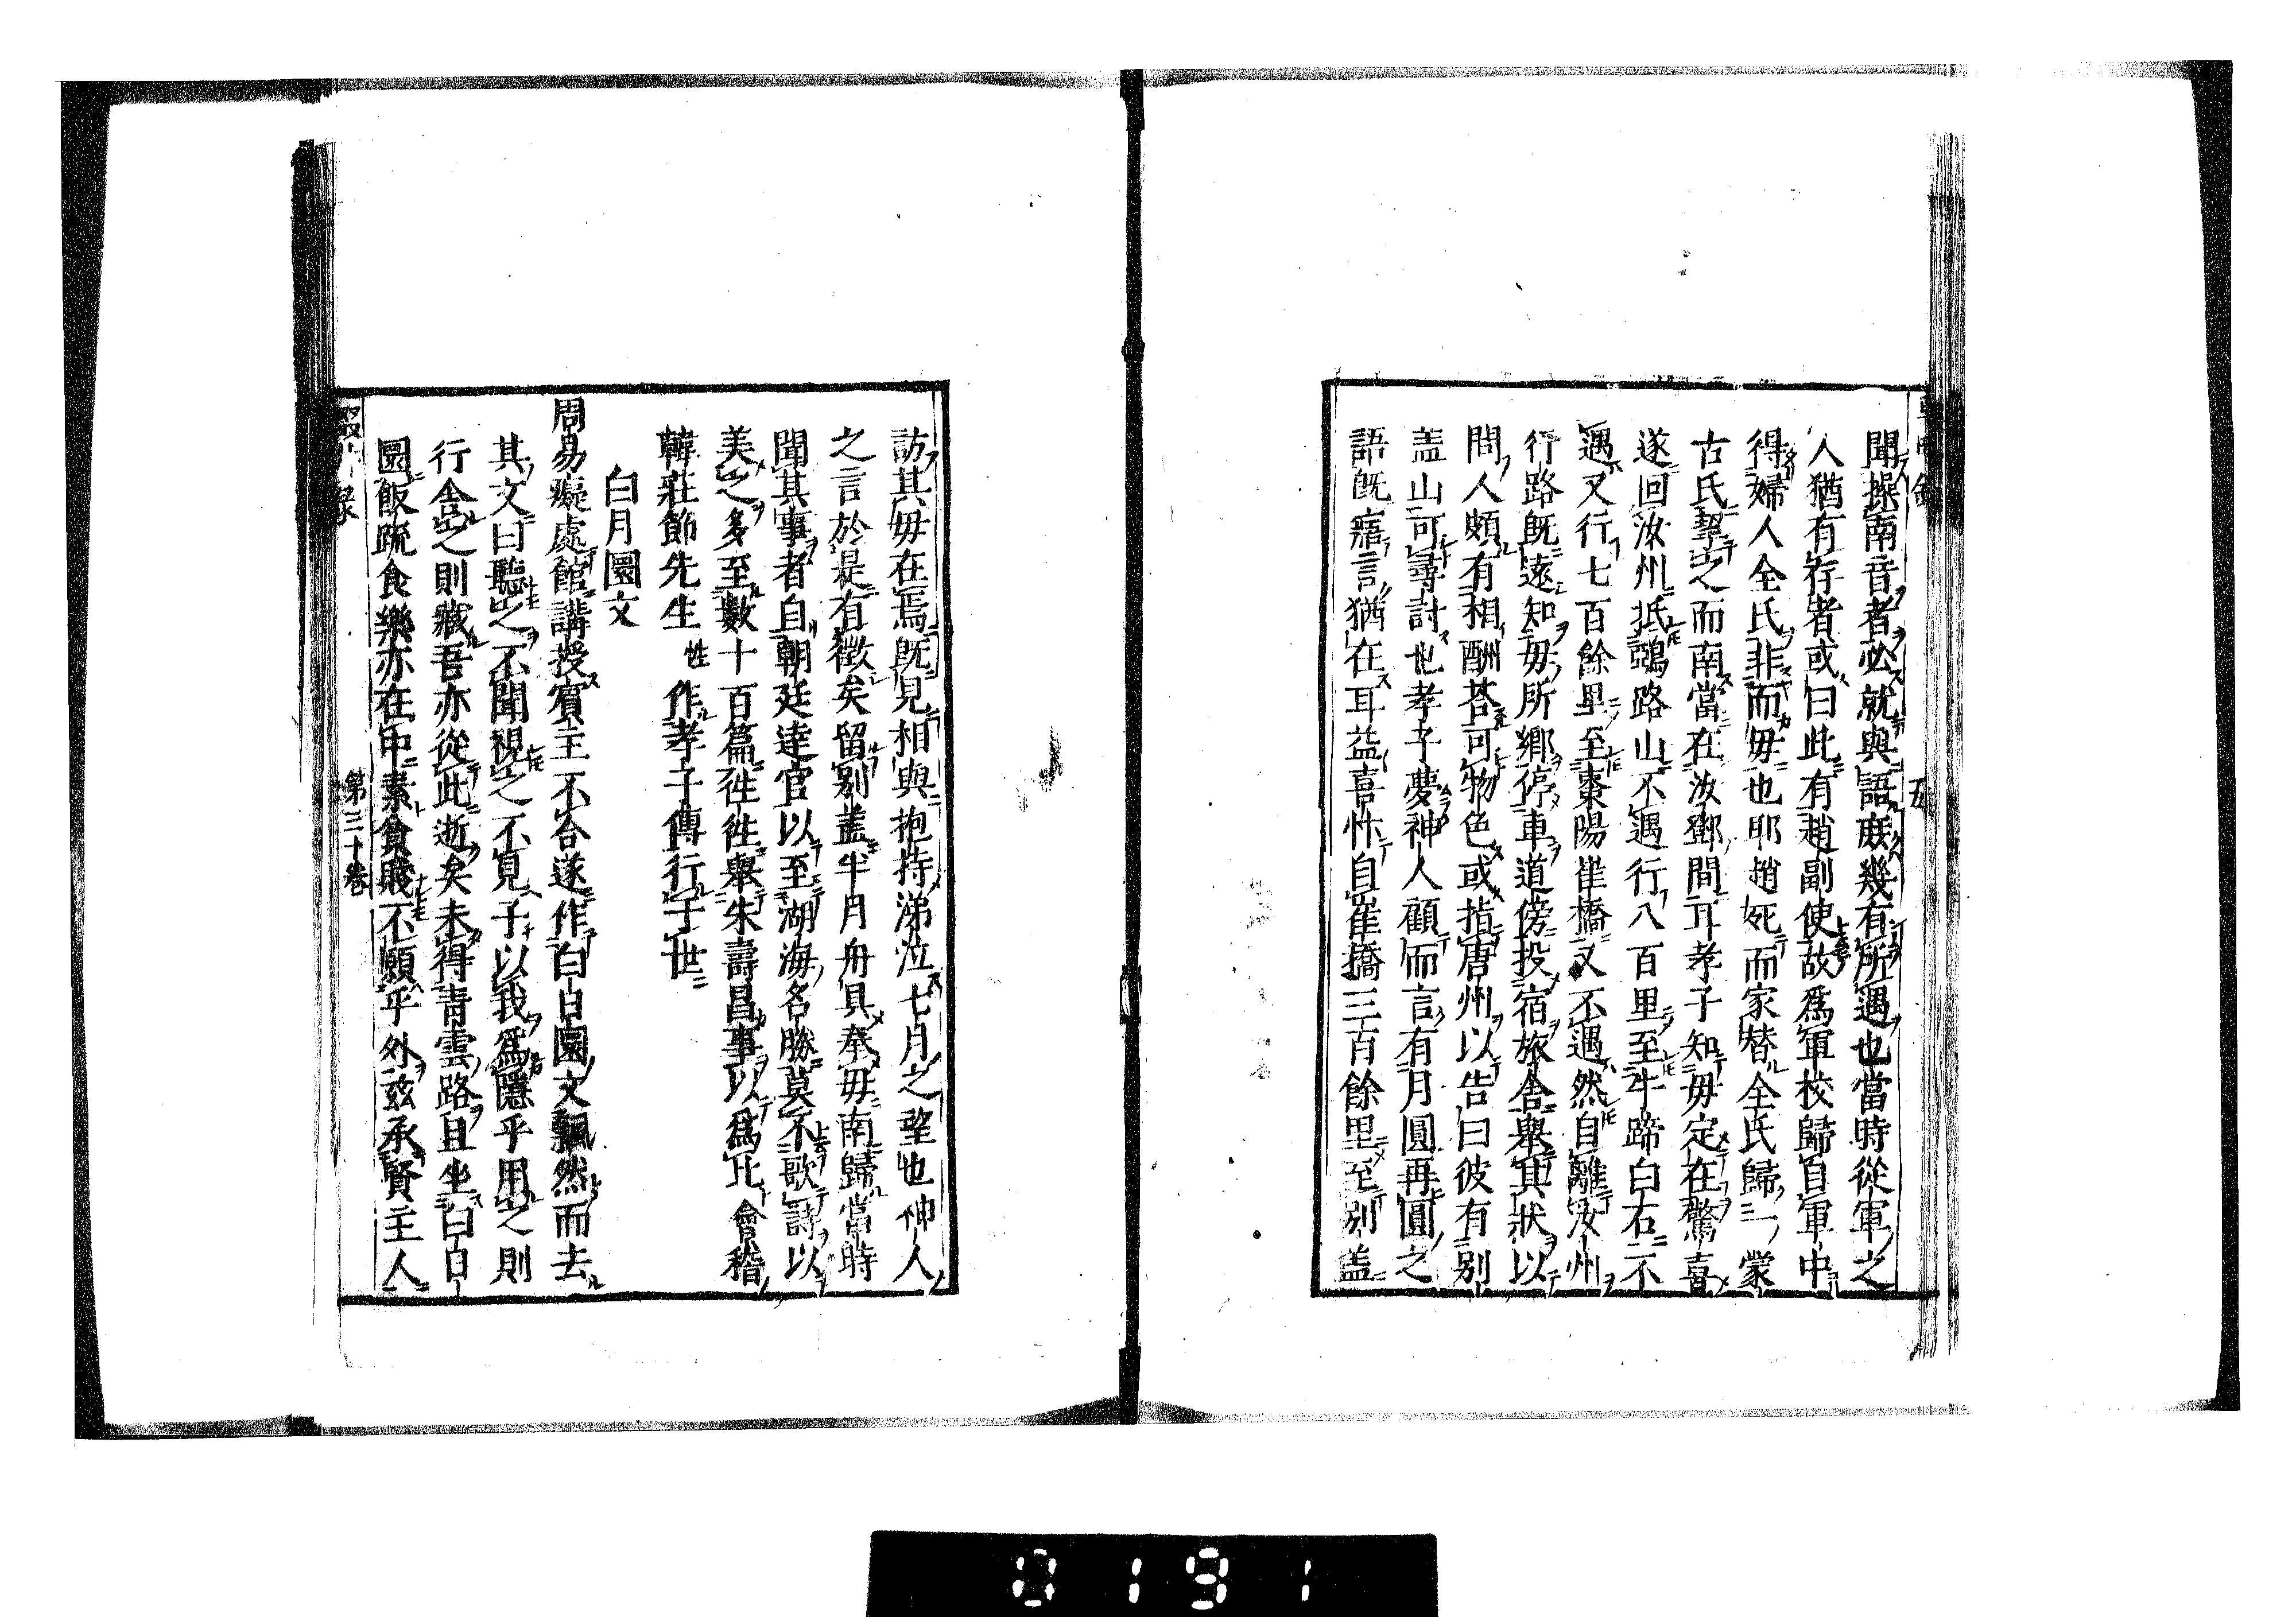 聞操南音者必就與語庻幾有所遇也當時從軍之
人猶有存者或曰此有趙副使故爲軍校歸自軍中
得婦人全氏非而毋也耶趙死而家替全氏歸一蒙
古氏挈之而南當在汝鄧間耳孝子知毋定在驚喜
遂回汝州抵鵶路山不遇行八百里至牛蹄白石二不
遇又行七百餘里至棗陽崔橋又不遇然自離汝州
行路旣遠知毋所鄉停車道傍投宿旅舎舉其狀以
問人頗有相酬荅可物色或指唐州以告曰彼有别
盖山可尋討也孝子夢神人顧而言有月圓再圓之
語旣寤言猶在耳益喜忭自崔橋三百餘里至别盖
訪其毋在焉旣見相與抱持涕泣七月之望也神人
之言於是有徵矣留别盖半月舟具奉毋南歸當時
聞其事者自朝廷達官以至湖海名勝莫不歌詩以
美之多至數十百篇徃徃舉朱壽昌事以爲比會稽
韓莊節先生性作孝子傳行于世
白月圓文
周易癡處館講授賓主不合遂作白日園文飄然而去
其文曰聽之不聞視之不見子以我爲隱乎用之則
行舎之則藏吾亦從此逝矣未得青雲路且坐白日
園飯疏食樂亦在中素貧賤不願乎外兹承賢主人
第三十卷
0191